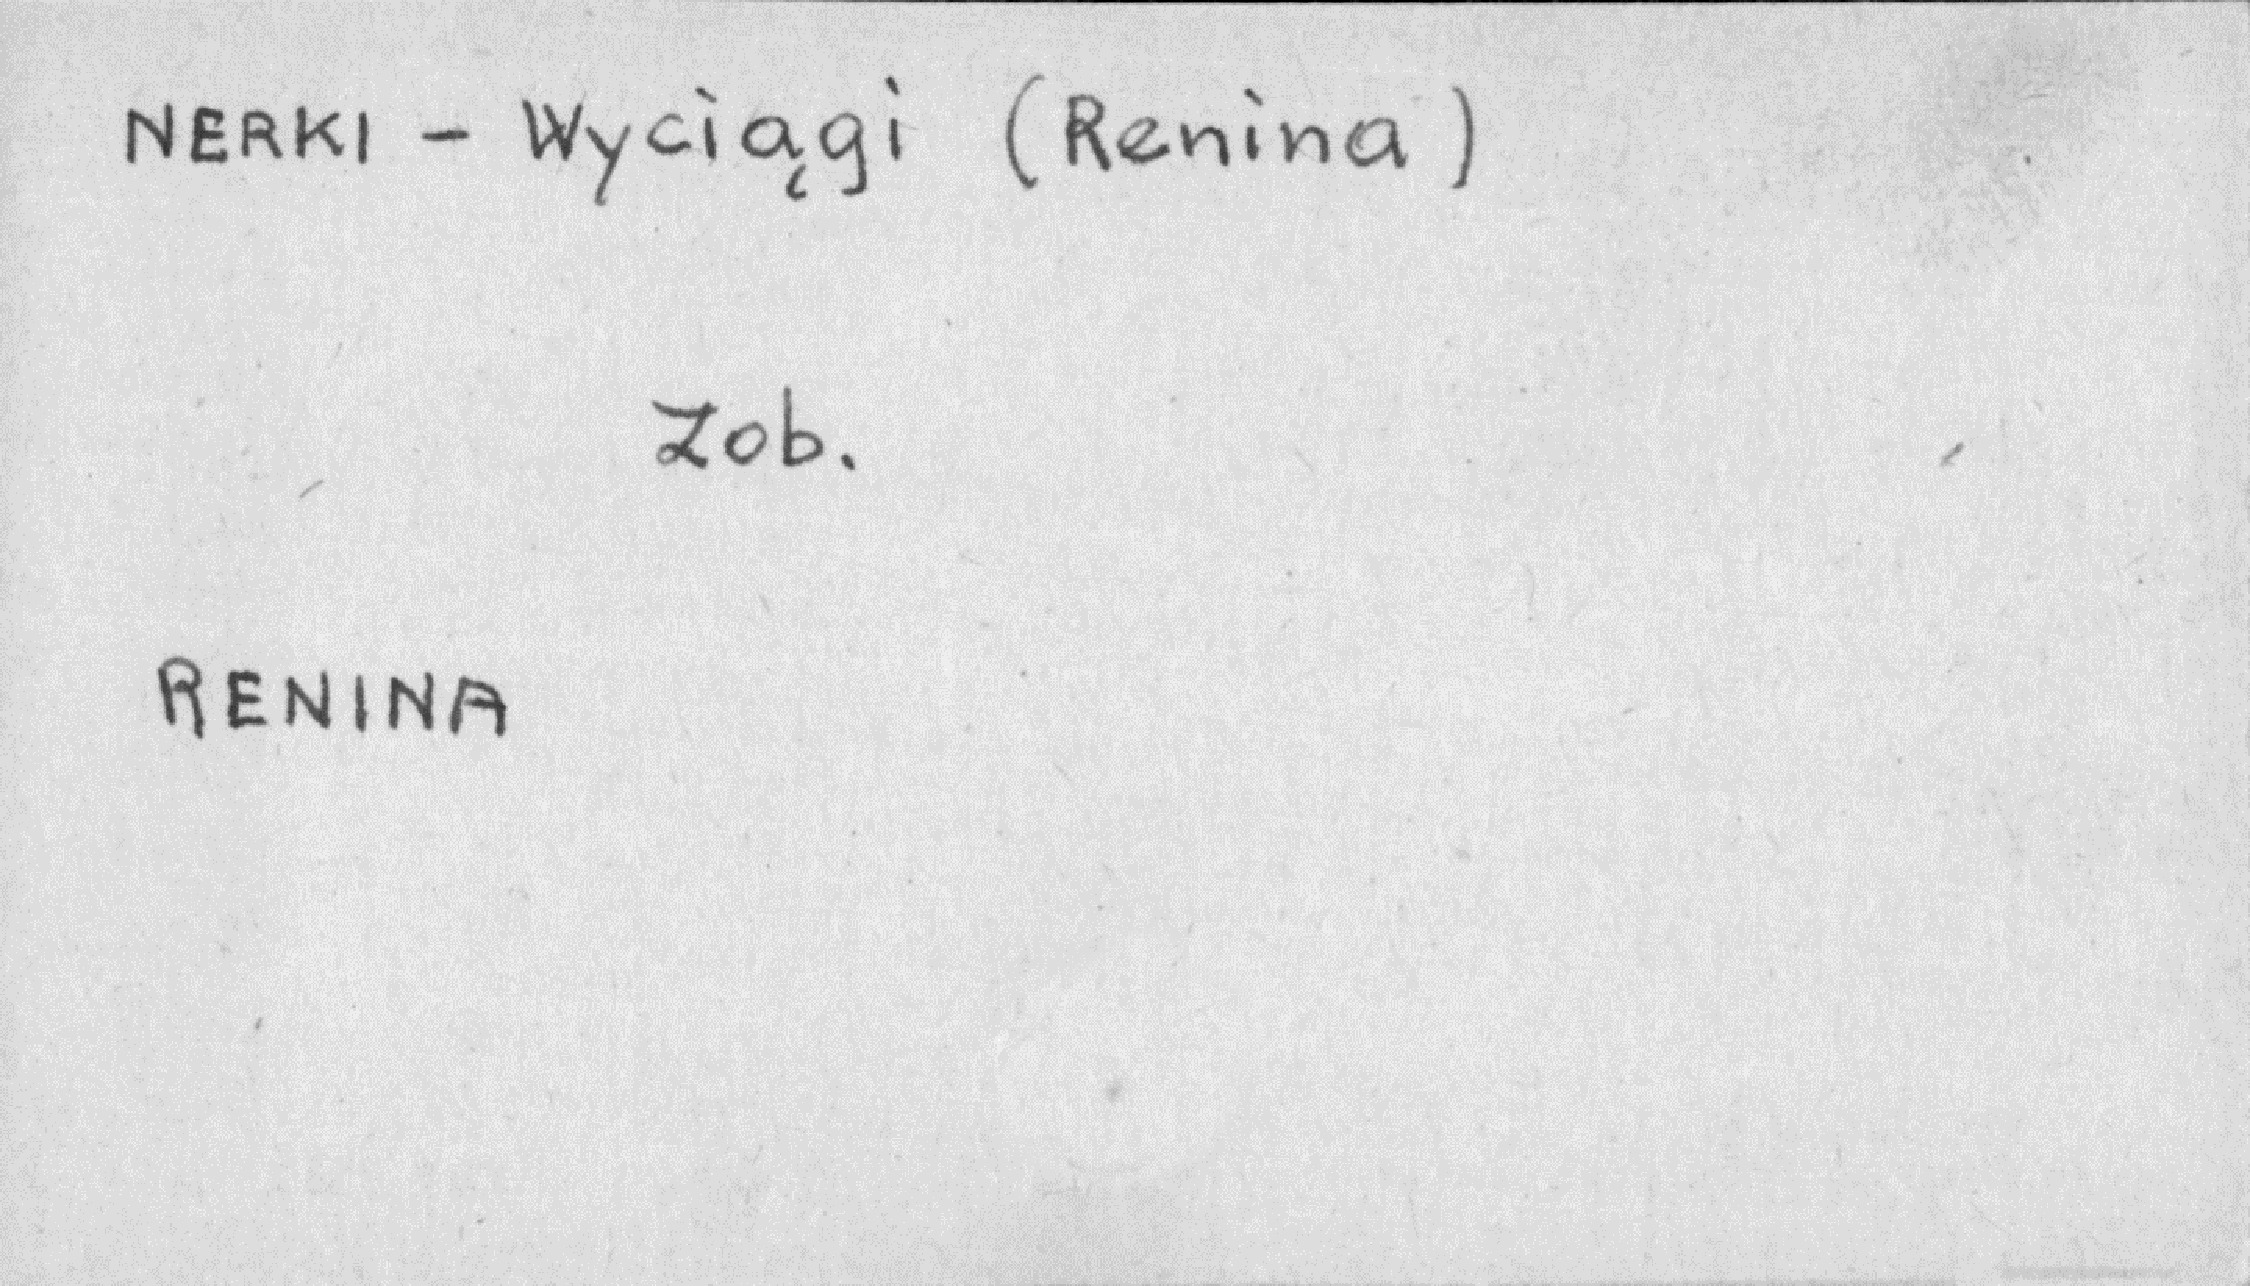 NERKI - Wyciągi (Renina)
Zob.
RENINA